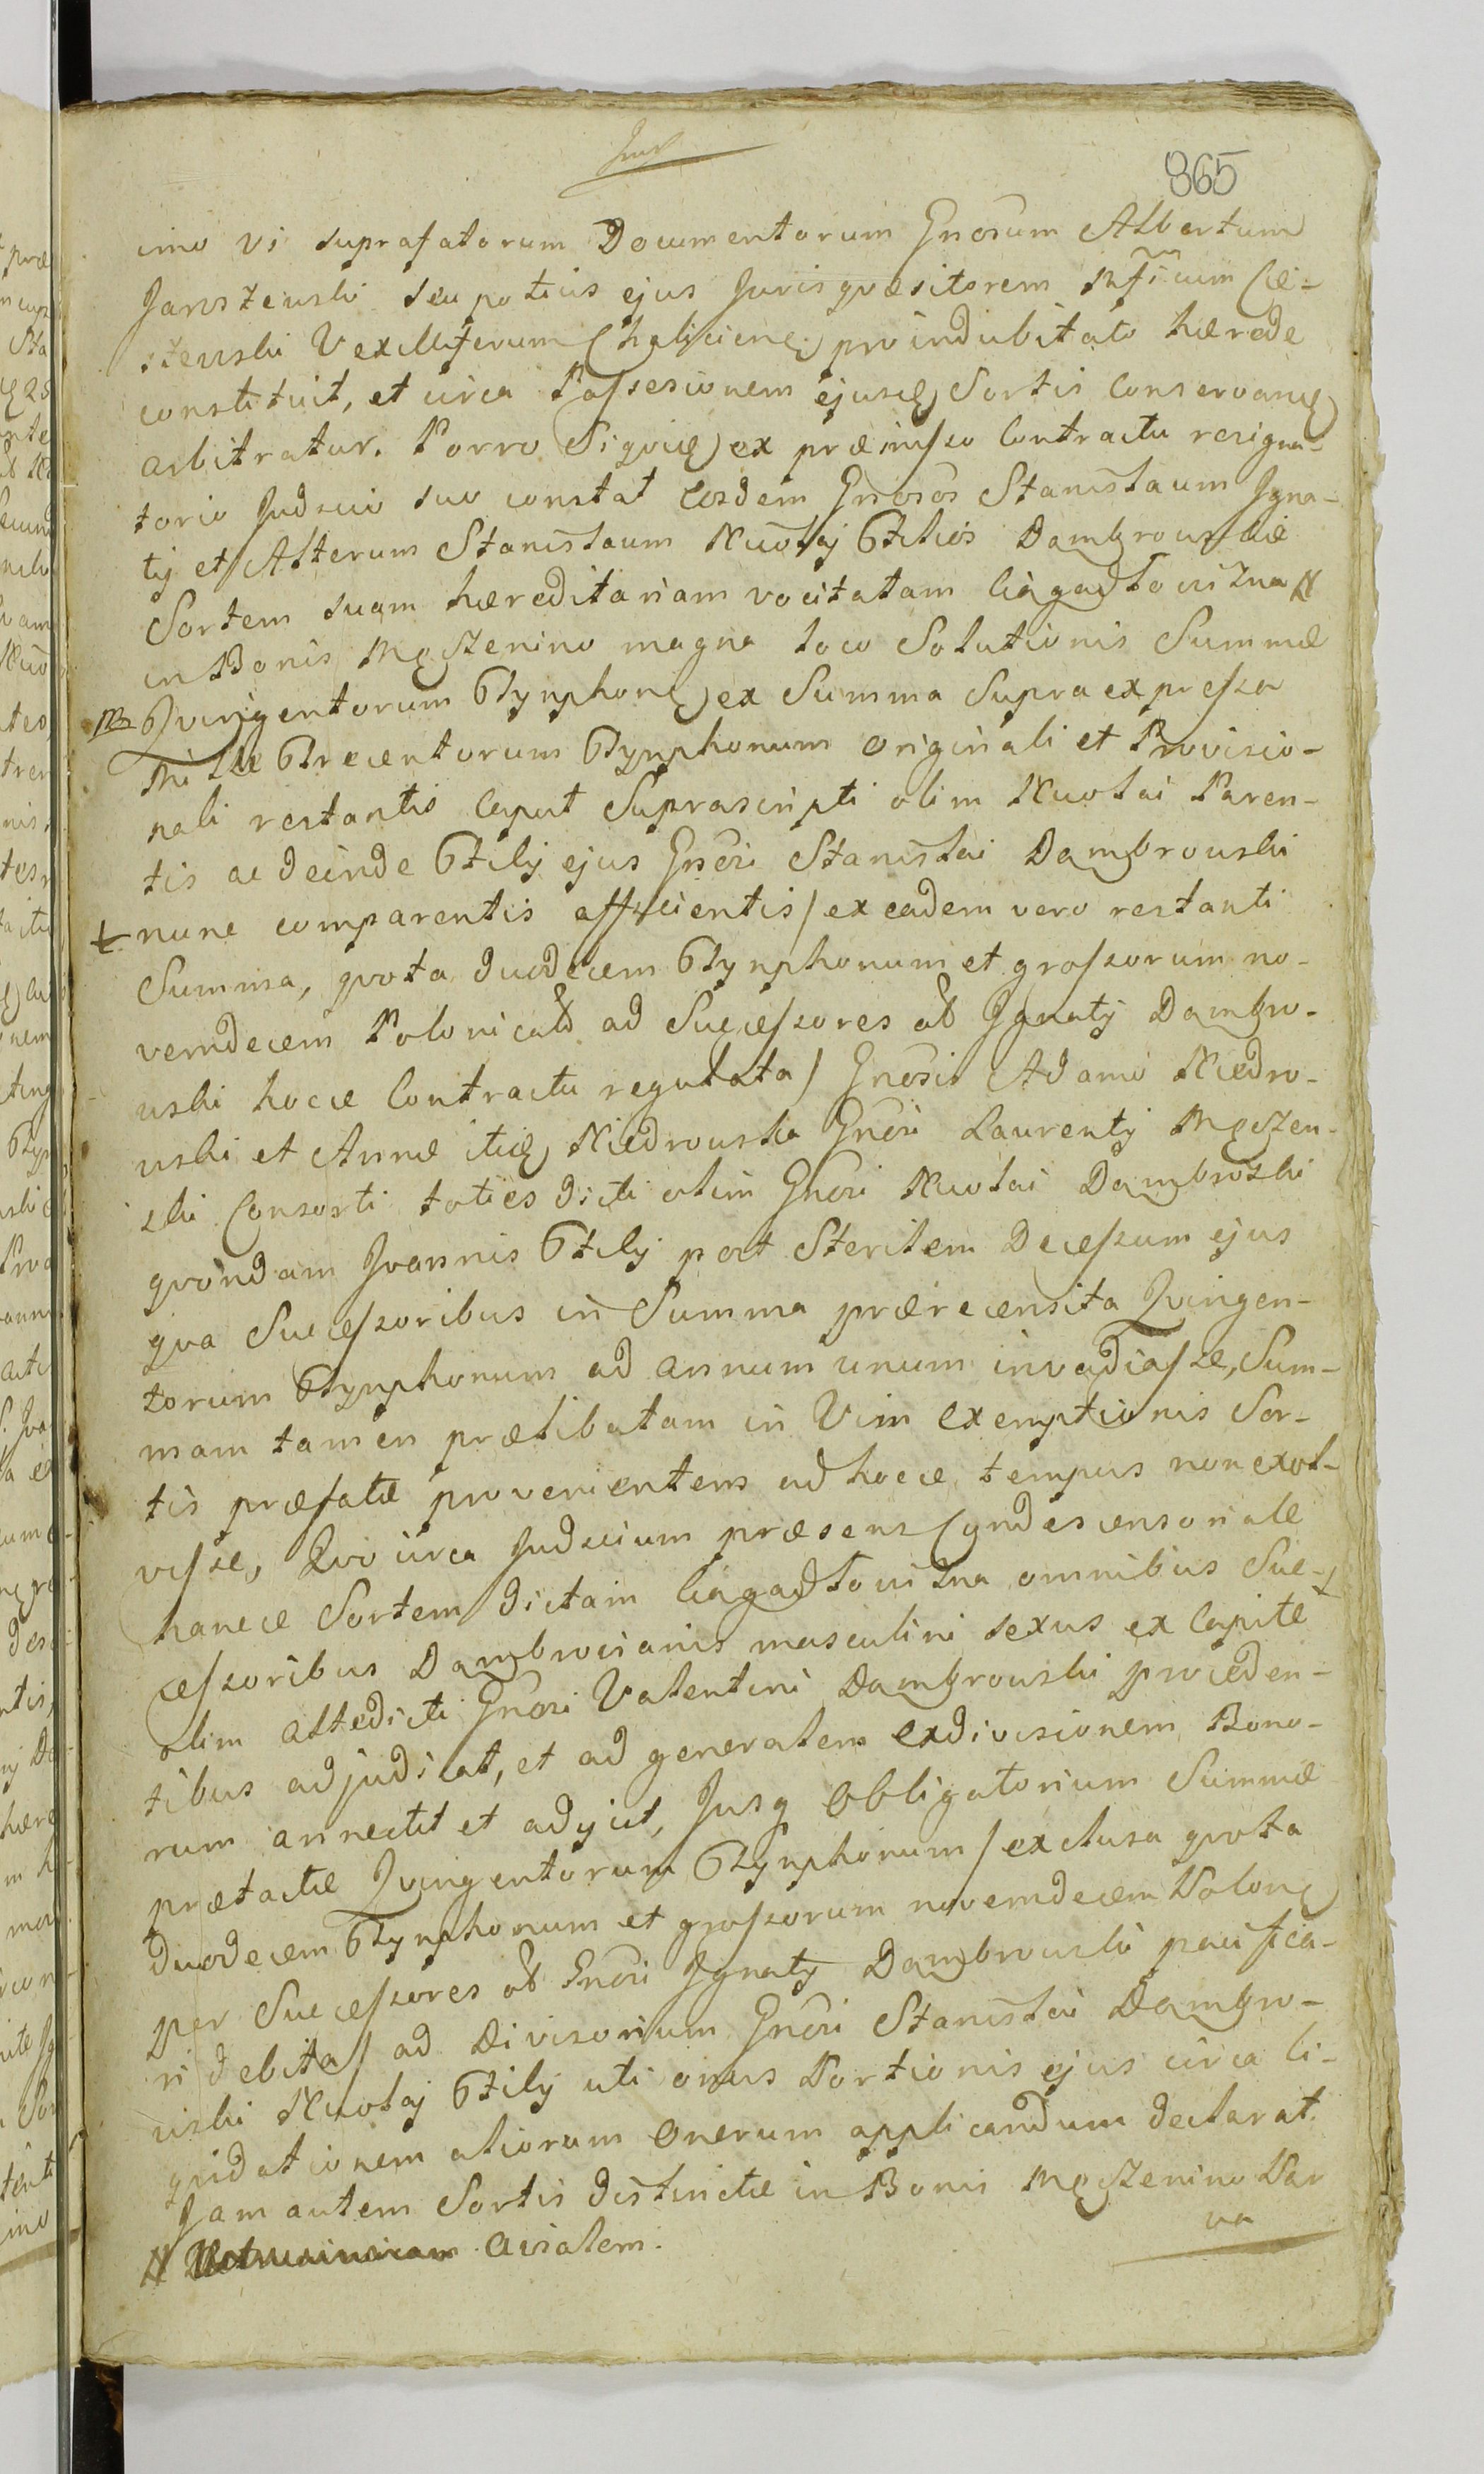 865
imo vi suprafatorum Documentorum Gnosum Albertum
Jaroszewski seu potius ejus Jurisquæsitorem Mfficum Cie-
szewski Vexilliferum Chęliciens: pro indubitato hærede
constituit, et circa Possesionem ejusdę Sortis Conservandę
arbitratur. Porro Siquidę ex præmisso Contractu resigna-
torio Judicio suo constat Eosdem Gnosos Stanislaum Igna-
tij et Alterum Stanislaum Nicolaj Filios Dambrowskie
Sortem suam hæreditariam vocitatam Ciągadłowizna #
in Bonis Mgszenino magna loco Solutionis Summæ
Qvingentorum Tynphonę ex Summa Supra expressa
Mille Trecentorum Tynphonum originali et Provisio-
nali restantis Caput Suprascripti olim Nicolai Paren-
tis ac deinde Filij ejus Gnosi Stanislai Dambrowski
nunc comparentis afficientis / ex eadem vero restanti
Summa, qvota duodecem Tynphonum et grossorum no-
vemdecem Polonicalᵬ ad Successores oᵬ Ignatij Dambro-
wski hocce Contractu regulata / Gnosis Adamo Niedro-
wski et Annæ itidę Niedrowska Gnosi Laurentij Mgszen-
ski Consorti toties dicti olim Gnosi Nicolai Dambroski
qvondam Joannis Filij post Sterilem Decessum ejus
qva Successoribus in Summa prærecensita Qvingen-
torum Tynphonum ad annum unum invadiasse, Sum-
mam tamen prælibatam in Vim Exemptionis Sor-
tis præfatæ provenientem ad hocce tempus non exol-
visse, Qvocirca Judicium præsens Condescensoriale
hancce Sortem dictam Ciągadłowizna omnibus Suc-
cessoribus Dambrovianis masculini sexus ex Capite
olim altedicti Gnosi Valentini Dambrowski proceden-
tibus adjudicat, et ad generalem Exdivisionem Bono-
rum annectit et adijcit, Jusq Obligatorium Summæ
prætactæ Qvingentorum Tynphonum / exclusa qvota
duodecem Tynphonum et grossorum novemdecem Polonę
per Successores oᵬ Gnosi Ignatij Dambrowski pacifica-
ri debita / ad Divisorium Gnosi Stanislai Dambro-
wski Nicolaj Filij uti onus Portionis ejus circa li-
qvidationem aliorum Onerum applicandum declarat.
Jam autem Sortis distinctæ in Bonis Mgszenino Par
va
# avialem.